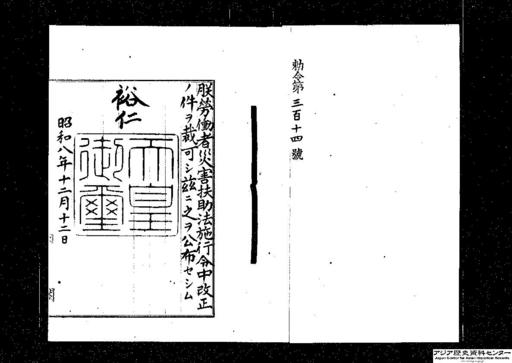 勅令第三百十四號
朕勞働者災害扶助法施行令中改正
ノ件ヲ裁可シ茲ニ之ヲ公布セシム
裕仁
天皇御璽
昭和八年十二月十二日
アジア歴史資料センター
Japan Center for Asian Historical Records